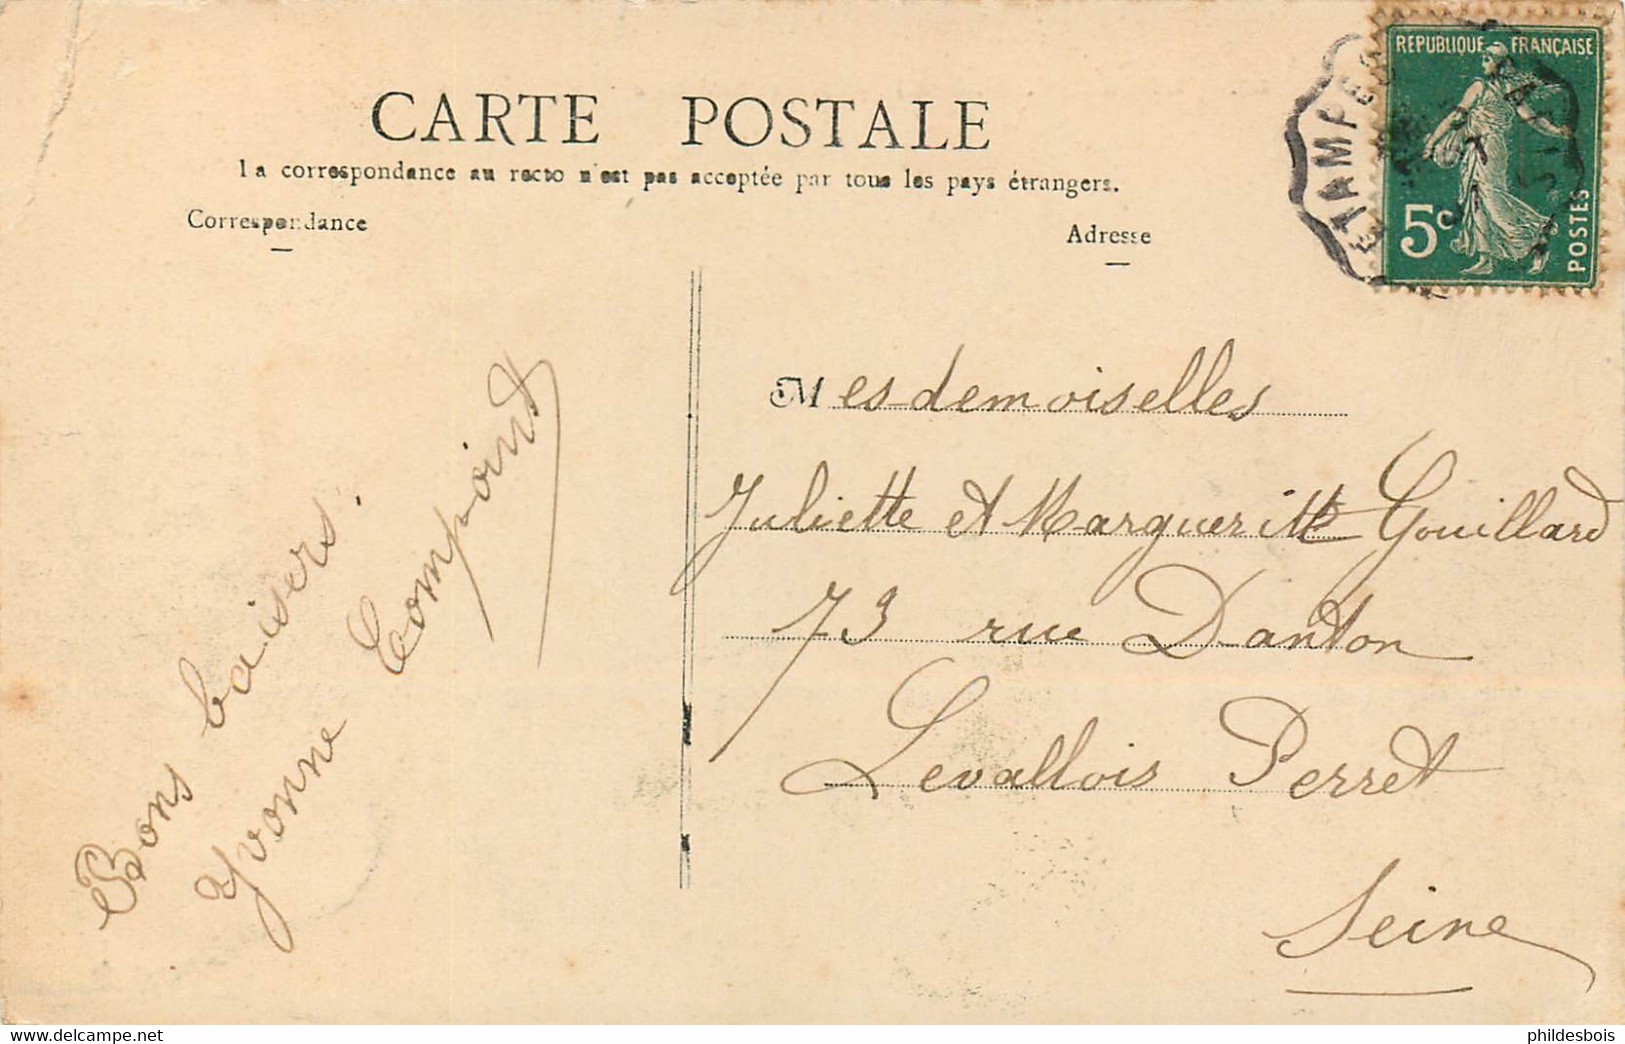 CARTE POSTALE
La correspondance au recto n'est pas acceptée par tous les pays étrangers.
Correspondance
Adresse
REPUBLIQUE FRANÇAISE
5c
POSTES
ETAMPES
PARIS
Mesdemoiselles
Juliette et Marguerite Gouillard
73 rue Danton
Levallois Perret
Seine
Bons baisers.
Yvonne Compoint
delcampe.net
phildesbois